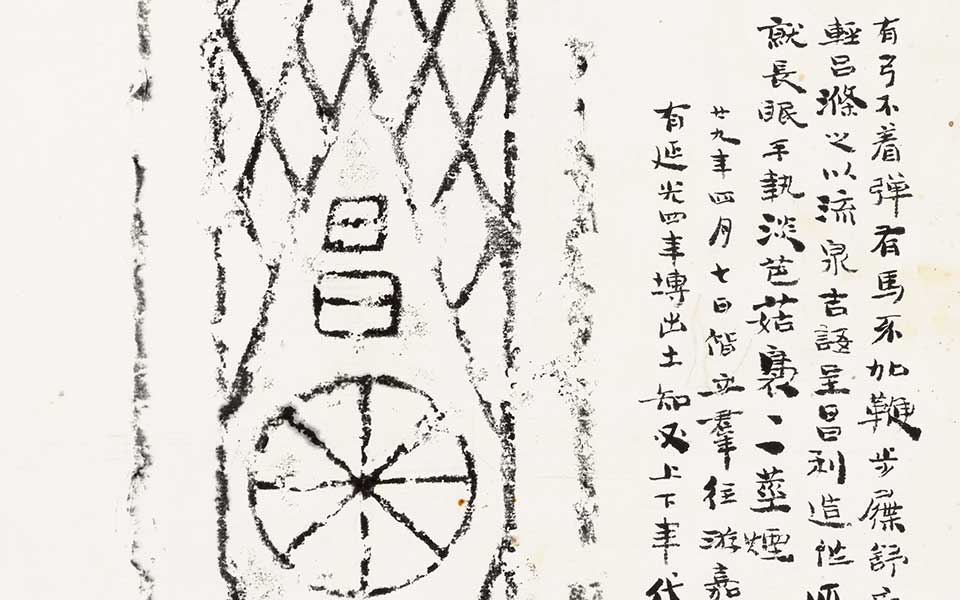 有弓不着弹有馬不加鞭步屧舒
輕呂滌之以流泉吉語呈昌利造性
就長眠手執淡芭菰裊二莖煙
廿九年四月七日偕立羣往游嘉
有延光四年塼出土知必上下年代
昌